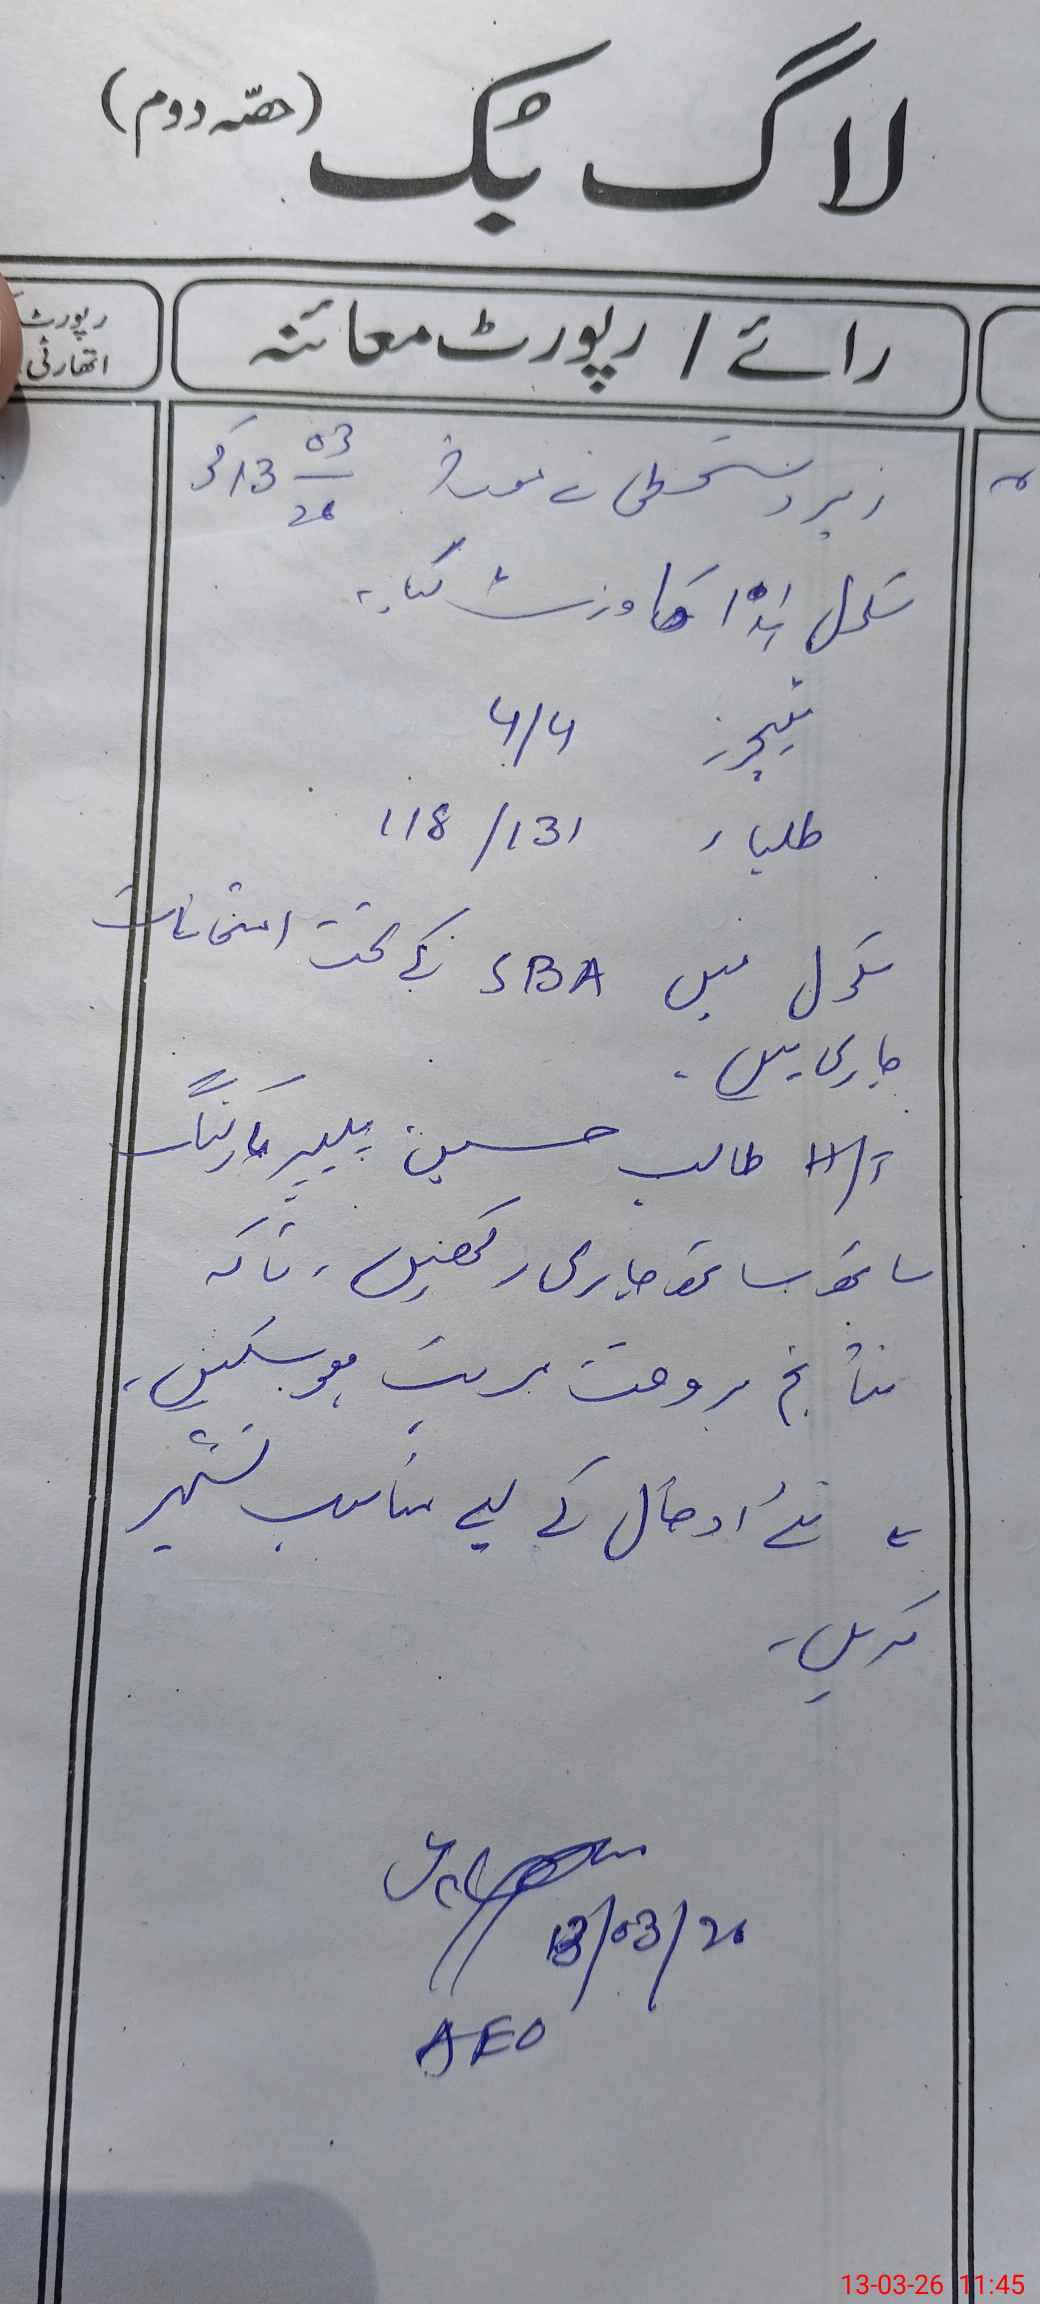 لاگ بک (حصّہ دوم)
رائے / رپورٹ معائنہ
رپورٹ
اتھارٹی
زیر دستخطی نے مورخہ 13 03/26 کو
سکول ہذا کا وزٹ کیا۔
ٹیچرز 4/4
طلباء 118/131
سکول میں SBA کے تحت امتحانات
جاری ہیں۔
H/T طالب حسین پیپر مارکنگ
ساتھ ساتھ جاری رکھیں، تاکہ
نتائج بروقت مرتب ہو سکیں۔
نئے داخل کے لیے مناسب تشہیر
کریں۔
13/03/26
AEO
13-03-26 11:45